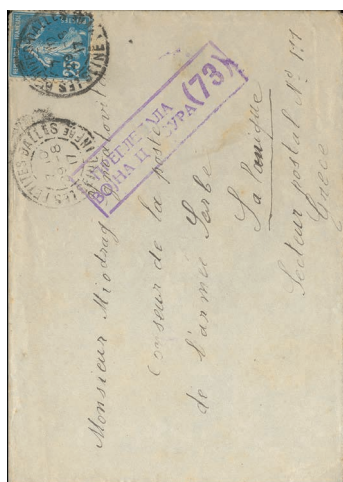 25
LES PETITES DALLES
ПРЕГЛЕДАЛА
ВОЈНА ЦЕНЗУРА (73)
Monsieur Miodrag
Censeur de la poste
de l'armée Serbe
Salonique
Secteur postal No 177
Grèce